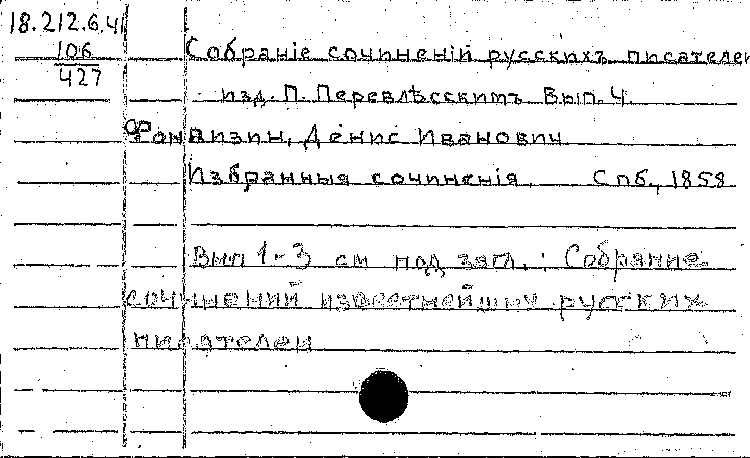 18.212.6.4
106
427
Собраніе сочиненій русскихъ писателей
изд. П. Перевлѣсскимъ Вып. 4.
Фонвизин, Денис Иванович
Избранныя сочиненія. Спб., 1858
Вып 1-3 см под загл.: Собрание
сочинений известнейших русских
писателей